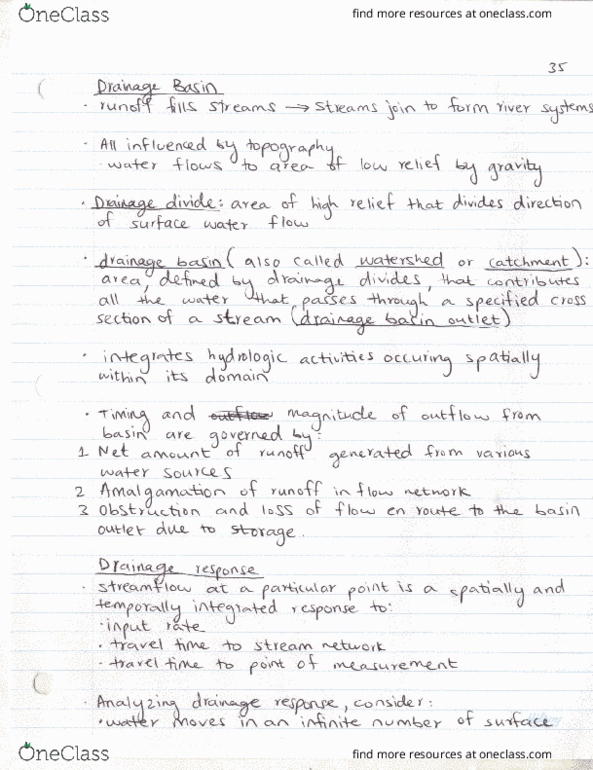 OneClass
find more resources at oneclass.com
35
Drainage Basin
· runoff fills streams → streams join to form river systems
· All influenced by topography
· water flows to area of low relief by gravity
· Drainage divide: area of high relief that divides direction
of surface water flow
· drainage basin (also called watershed or catchment):
area, defined by drainage divides, that contributes
all the water that passes through a specified cross
section of a stream (drainage basin outlet)
· integrates hydrologic activities occuring spatially
within its domain
· Timing and outflow magnitude of outflow from
basin are governed by:
1 Net amount of runoff generated from various
water sources
2 Amalgamation of runoff in flow network
3 Obstruction and loss of flow en route to the basin
outlet due to storage.
Drainage response
· streamflow at a particular point is a spatially and
temporally integrated response to:
· input rate
· travel time to stream network
· travel time to point of measurement
· Analyzing drainage response, consider:
· water moves in an infinite number of surface
OneClass
find more resources at oneclass.com